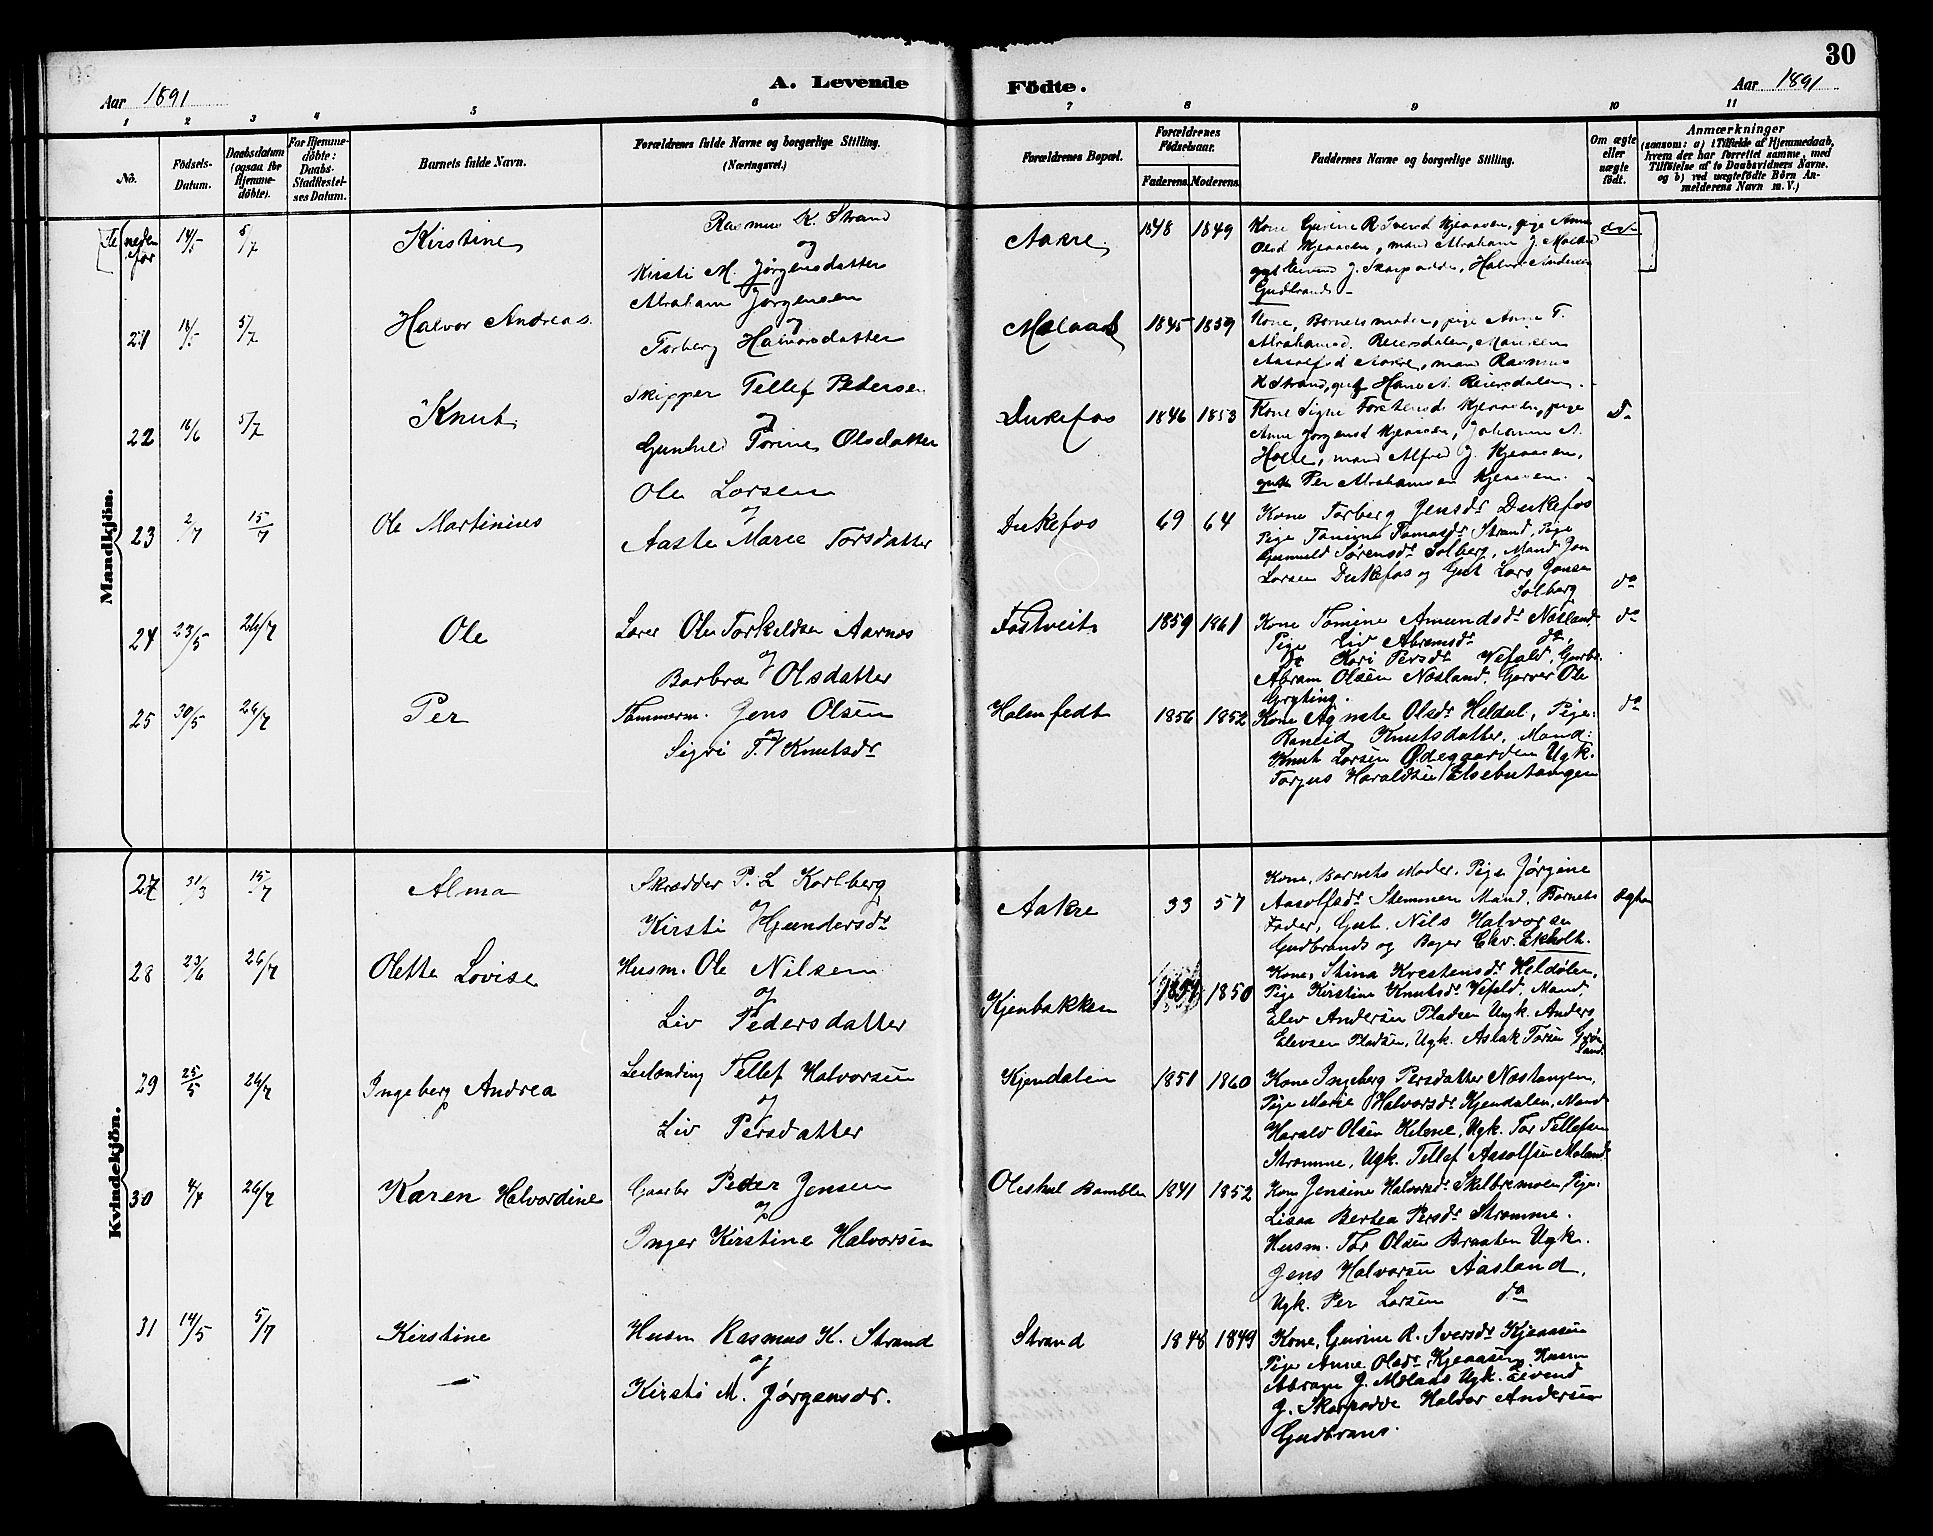 30
A. Levende Födte.
Aar 1891
Aar 1891
1 2 3 4 5 6 7 8 9 10 11
No.
Födsels-Datum.
Daabsdatum (ogsaa for Hjemme-döbte).
For Hjemme-döbte: Daabs-Stadfæstel-ses Datum.
Barnets fulde Navn.
Forældrenes fulde Navne og borgerlige Stilling.
(Næringsvei.)
Forældrenes Bopæl.
Forældrenes Födselsaar.
Faderens. Moderens.
Faddernes Navne og borgerlige Stilling.
Om ægte eller uægte födt.
Anmærkninger
(saasom: a) i Tilfælde af Hjemmedaab, hvem der har forrettet samme, med Tilföielse af to Daabsvidners Navne, og b) ved uægtefödte Börn An-melderens Navn m. V.)
Mandkjön.
Se neden for 14/5 5/7 Kirstine
Rasmus K. Strand
og
Kirsti M. Jørgensdatter
Aakre 1848 1849
Kone Gurine R Iversd Kjeaasen, pige Anne
Olsd Kjeaasen, mand Abraham J. Molaas
gut Eivind J. Skarpodde, Halvor Andersen
Gudbrands
21 18/5 5/7 Halvor Andreas
Abraham Jørgensen
og
Torberg Halvorsdatter
Molaas 1845 1859
Kone, Barnets moder, pige Anne T.
Abrahamsd. Reiersdalen,
Aasolfsd Aakre, mand Rasmus
K Strand, gut Hans N. Reiersdalen.
22 16/6 5/7 Knut
Skipper Tellef Pedersen
og
Gunhild Torine Olsdatter
Dukefos 1846 1853
Kone Signe Torstensd Kjeaasen, pige
Anne Jørgensd Kjeaasen, Johanne A.
Holte, mand Alfred J. Kjeaasen,
gut Per Abrahamsen Kjeaasen.
Do
23 2/7 15/7 Ole Martinius
Ole Larsen
og
Aaste Marie Torsdatter
Dukefos 69 64
Kone Torberg Jensdr Dukefos
Pige Tomine Tomasdr Strand, Pige
Gunnild Sørensdr Solberg, Mand Jon
Larsen Dukefos og Gut Lars Jonsen
Solberg
do
24 23/5 26/7 Ole
Lærer Ole Torkeldsen Aarnes
og
Barbra Olsdatter
Fostveit 1859 1861
Kone Tomine Amundsdr Næsland
Pige Liv Abramsdr do,
Do Kari Persdr Vefald, Gaarbr.
Abram Olsen Næsland, Garver Ole
Gryting.
do
25 30/5 26/7 Per
Tømmerm. Jens Olsen
og
Sigri T. Knutsdr
Holmfedt 1856 1852
Kone Agnete Olsdr Heldal, Pige:
Raneid Knutsdatter, Mand:
Knut Larsen Ødegaarden Ugk.
Torjus Haraldsen Elsebutangen
do
Kvindekjön.
27 31/3 15/7 Alma
Skrædder P. L Karlberg
og
Kirsti Gjundersdr
Aakre 33 57
Kone, Barnets Moder, Pige Jørgine
Aasolfsdr Stemmen Mand, Barnets
Fader, Gut. Nils Halvorsen
Gudbrands og Bager Chr. Ekholt.
Ægte
28 23/6 26/7 Olette Lovise
Husm. Ole Nilsen
og
Liv Pedersdatter
Kjenbakken 1857 1850
Kone, Stina Krestensdr Heldalen,
Pige Kirstine Knutsdr Vefald, Mand
Elev Andersen Pladsen Ungk. Anders
Elevsen Pladsen, Ugk. Aslak Torsen Grøn-
sand.
29 25/5 26/7 Ingeberg Andrea
Leilænding Tellef Halvorsen
og
Liv Persdatter
Kjendalen 1851 1860
Kone Ingeberg Persdatter Næstangen,
Pige Marie Halvorsdr Kjendalen, Mand
Harald Olsen Kilene, Ugk. Tor Tellefsen
Strømme, Ugk. Tellef Aasolfsen Moland
30 4/7 26/7 Karen Halvordine
Gaarbr Peder Jensen
og
Inger Kirstine Halvorsen
Oleskul Bamble 1841 1852
Kone Jensine Halvorsdr Skilbremoen, Pige:
Lisaa Bertea Persdr Strømme.
Husm. Tor Olsen Braaten Ugk.
Jens Halvorsen Aasland,
Ugk. Per Larsen do
31 14/5 5/7 Kirstine
Husm Rasmus K. Strand
og
Kirsti M. Jørgensdr.
Strand 1848 1849
Kone, Gurine R. Iversdr Kjeaasen
Pige Anne Olsdr Kjeaasen, Husm
Abram J. Molaas Ugk. Eivend
J. Skarpodde Halvor Andersen
Gudbrans.